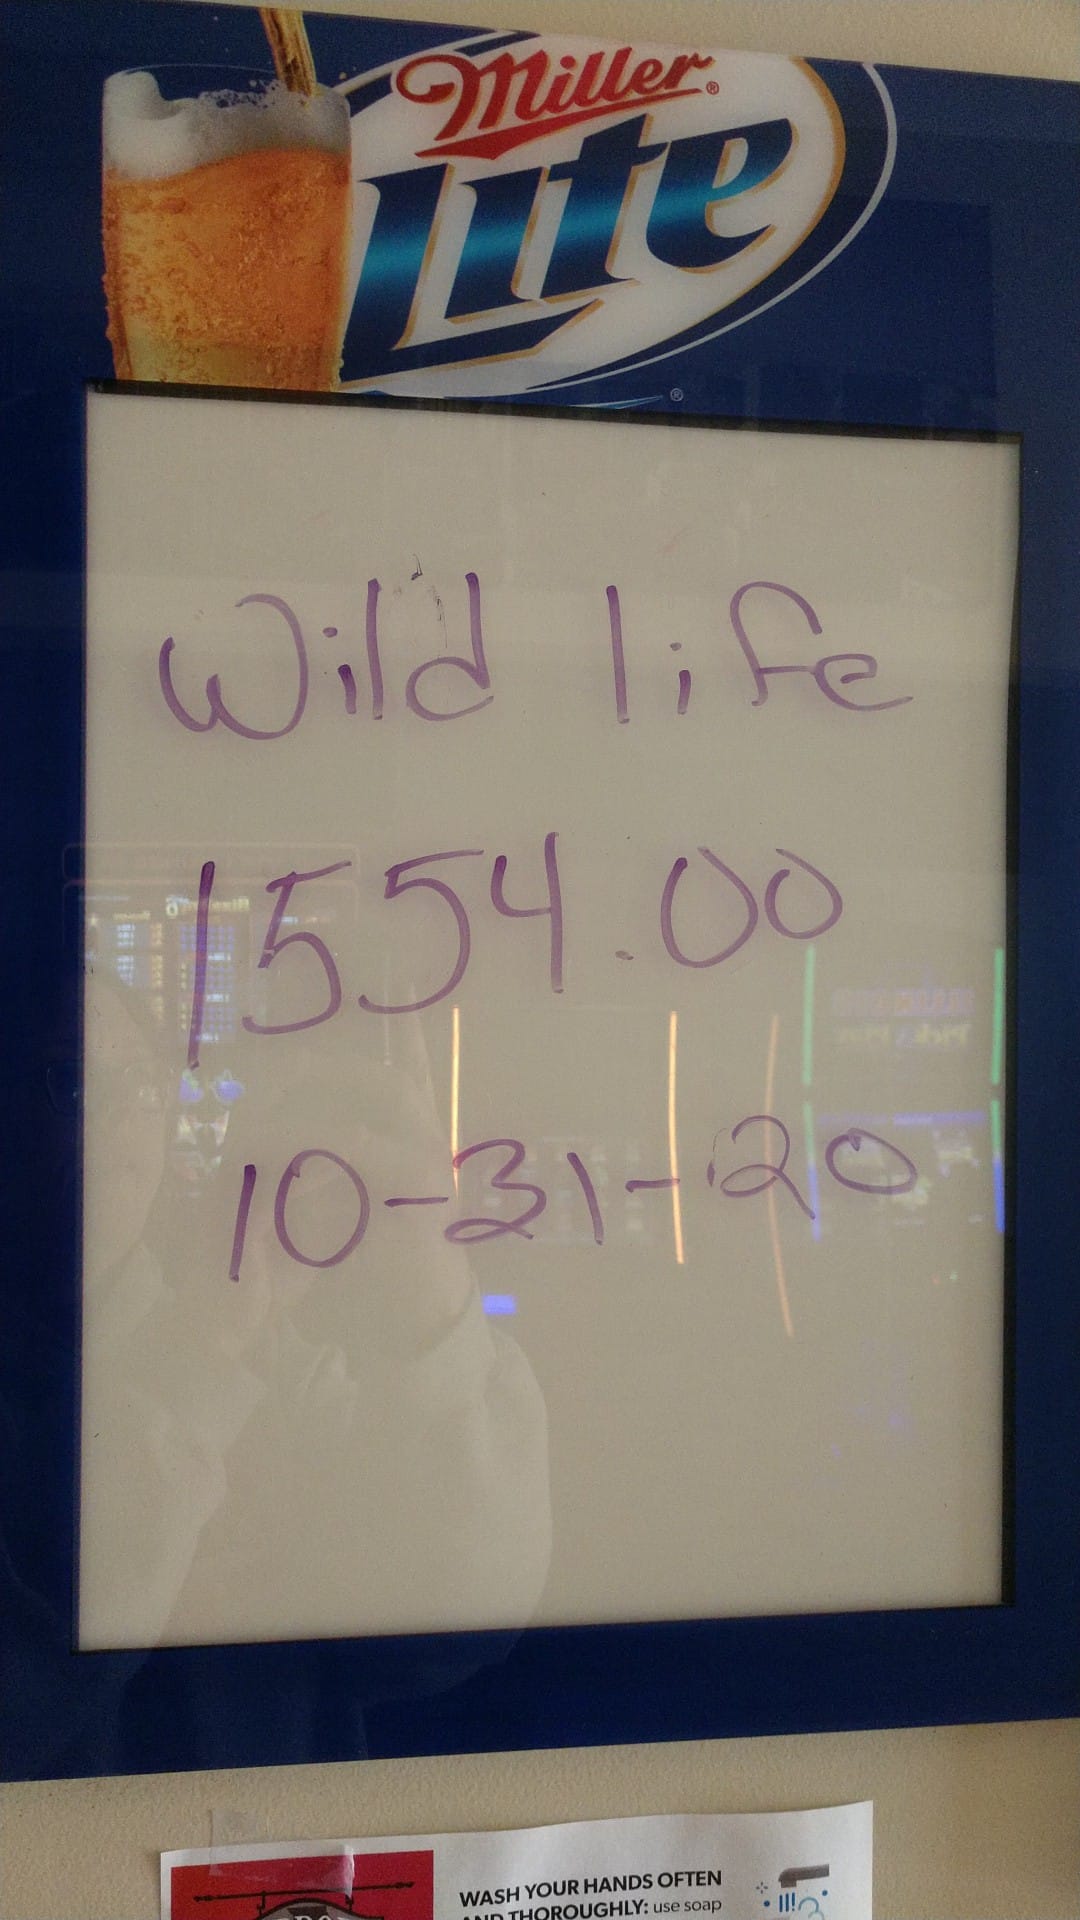 Miller®
Lite
®
Wild life
1554.00
10-31-20
WASH YOUR HANDS OFTEN
AND THOROUGHLY: use soap